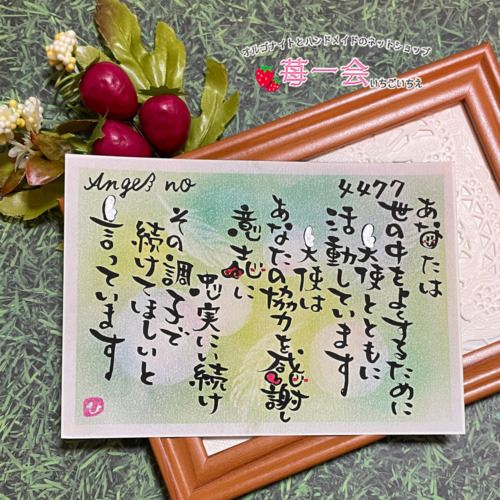 オルゴナイトとハンドメイドのネットショップ
苺一会
いちごいちえ
Angel no
4477
あなたは
世の中をよくするために
天使とともに
活動しています
天使は
あなたの協力を感謝し
意志に
忠実にい続け
その調子で
続けてほしいと
言っています
ひ